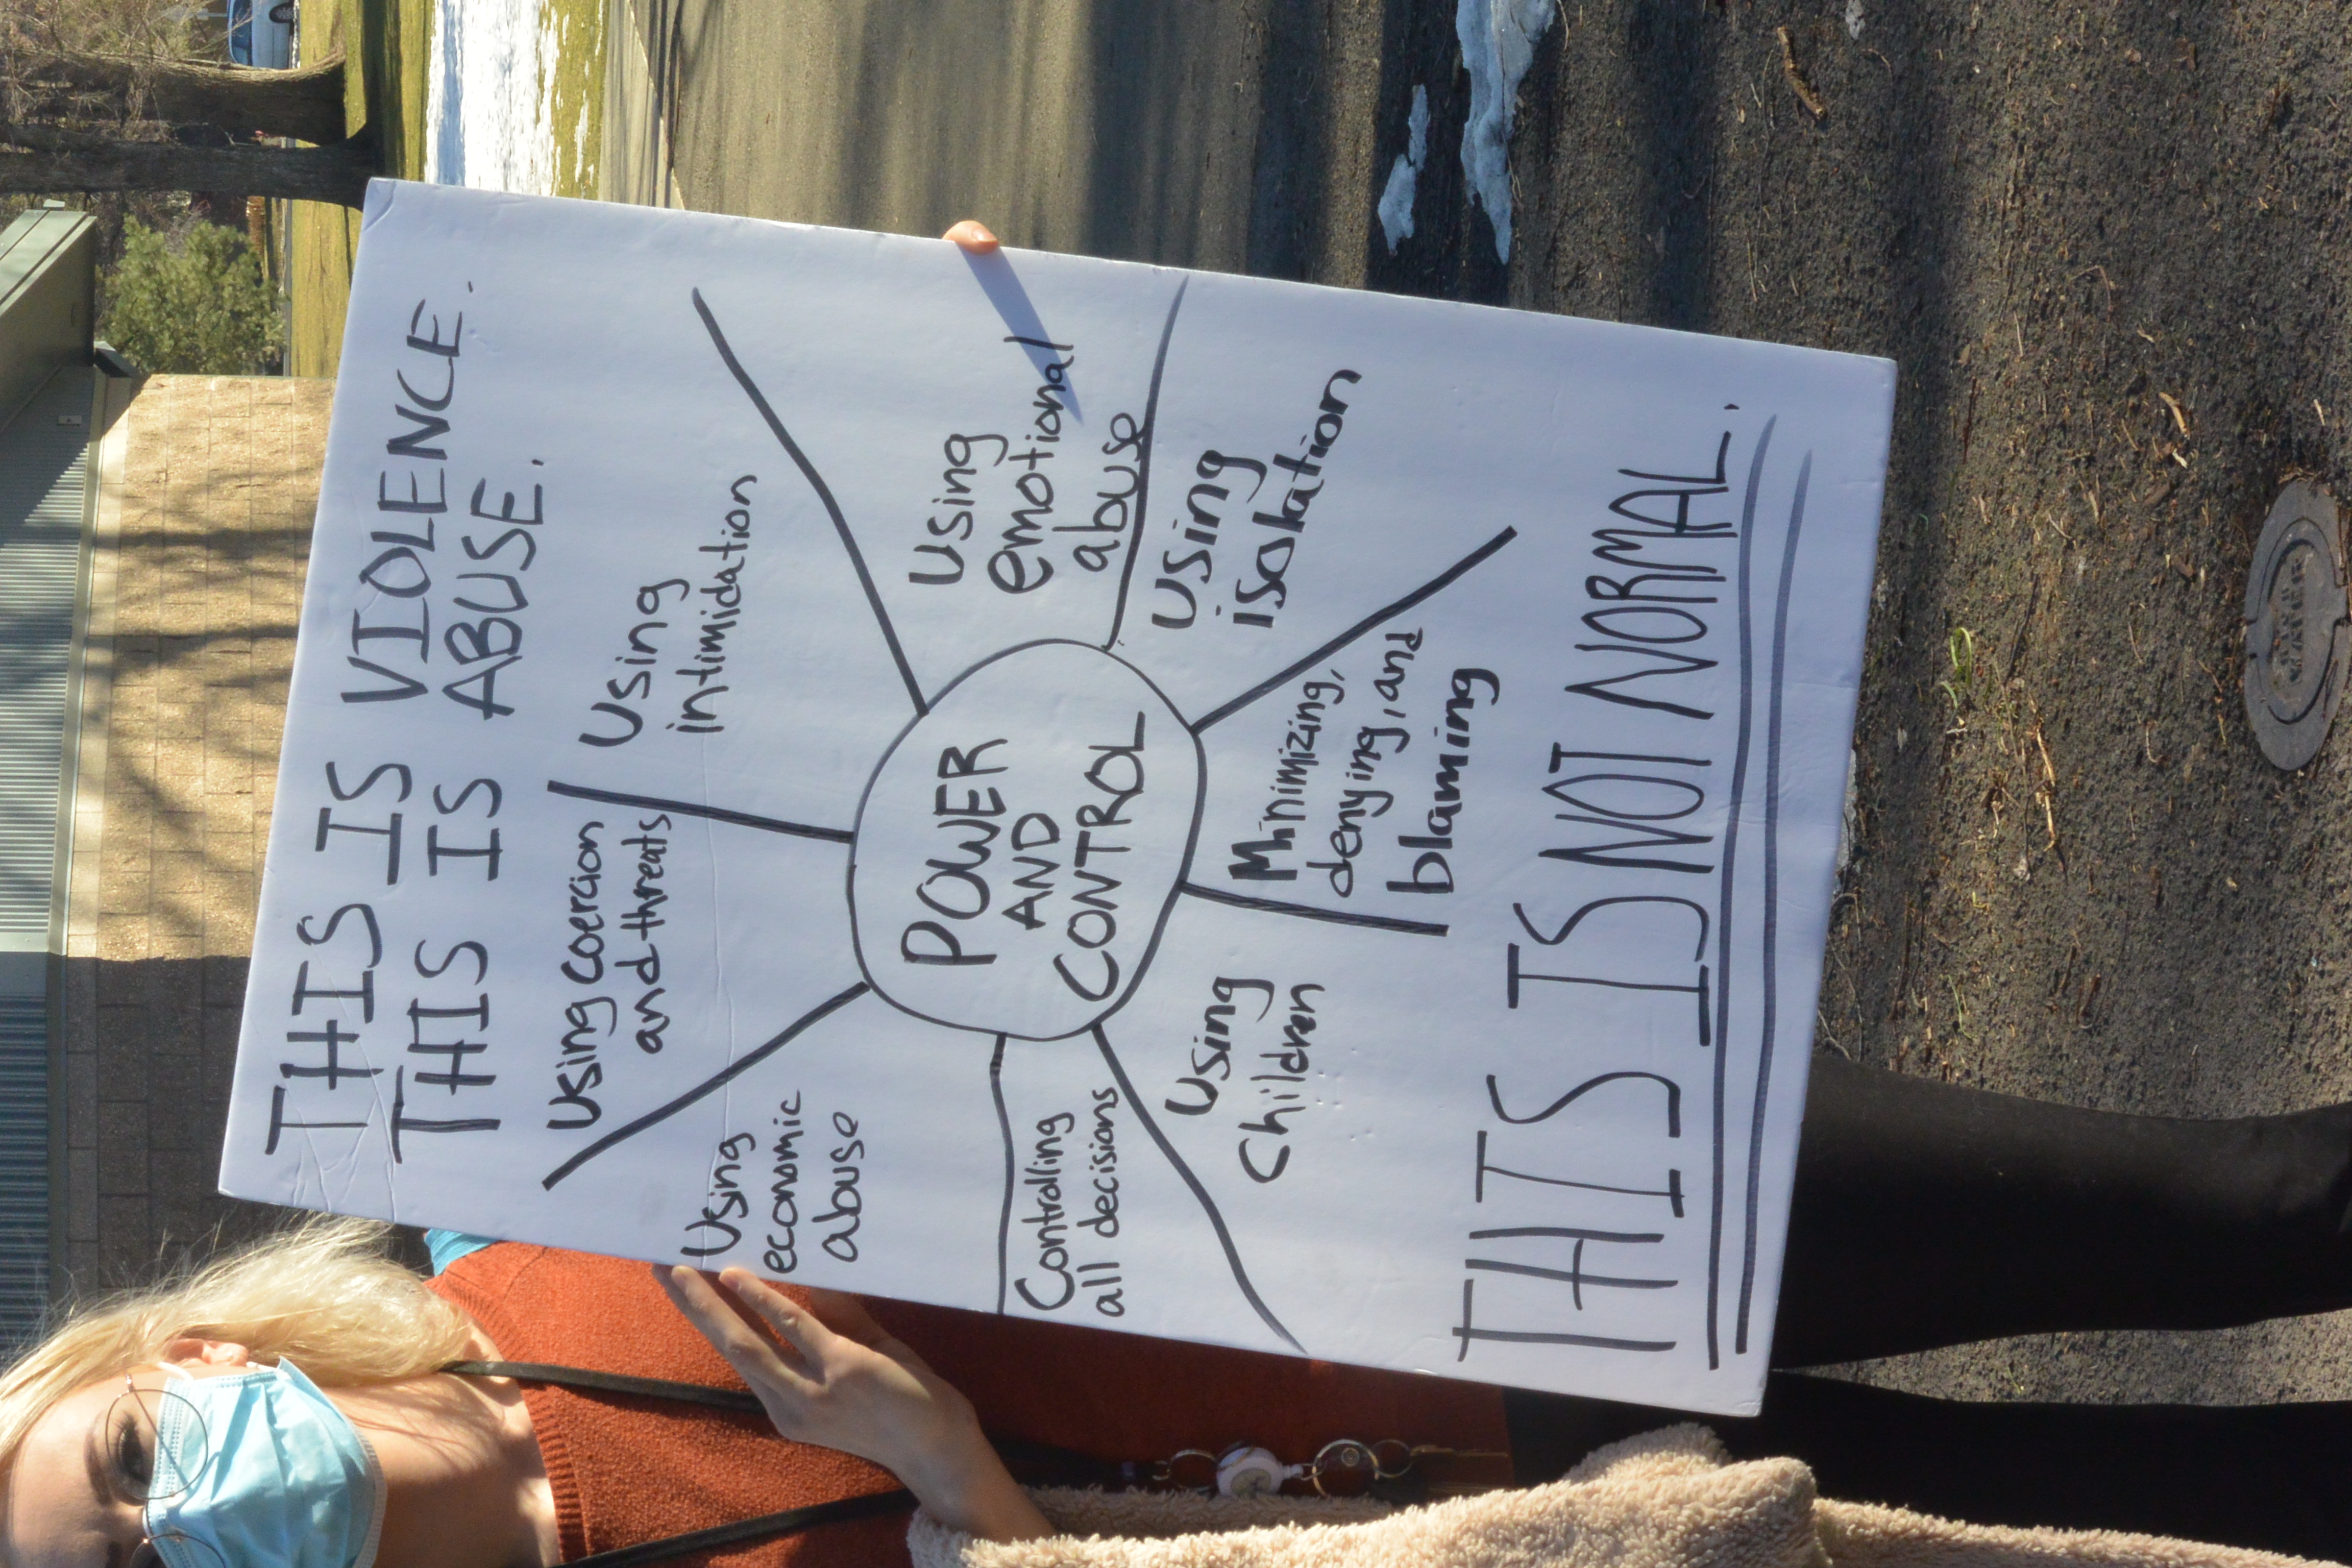 THIS IS VIOLENCE.
THIS IS ABUSE.
Using coercion
and threats
Using
intimidation
Using
emotional
abuse
Using
isolation
Minimizing,
denying, and
blaming
Using
Children
Controlling
all decisions
Using
economic
abuse
POWER
AND
CONTROL
THIS IS NOT NORMAL.
WATER